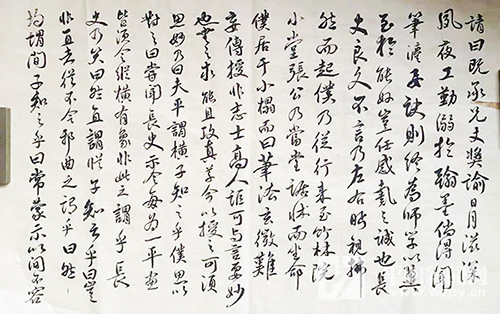 請曰既承兄丈奬諭日月滋深
夙夜工勤溺於翰墨倘得聞
筆法要訣則終為師学以冀
至於能妙豈任感戴之誠也長
史良久不言乃左右盻視拂
然而起僕乃從行来至竹林院
小堂張公乃當堂踞床而坐命
僕居于小榻而曰筆法玄微難
妄傳授非志士高人詎可与言要妙
也書之求能且攻真草今以授之可須
思妙乃曰夫平謂橫子知之乎僕思以
對之曰嘗聞長史示令每為一平畫
皆須令縱橫有象非此之謂乎長
史乃笑曰然直謂縱子知之乎曰豈
非直者從不令邪曲之謂乎曰然
均謂間子知之乎曰常蒙示以間不容